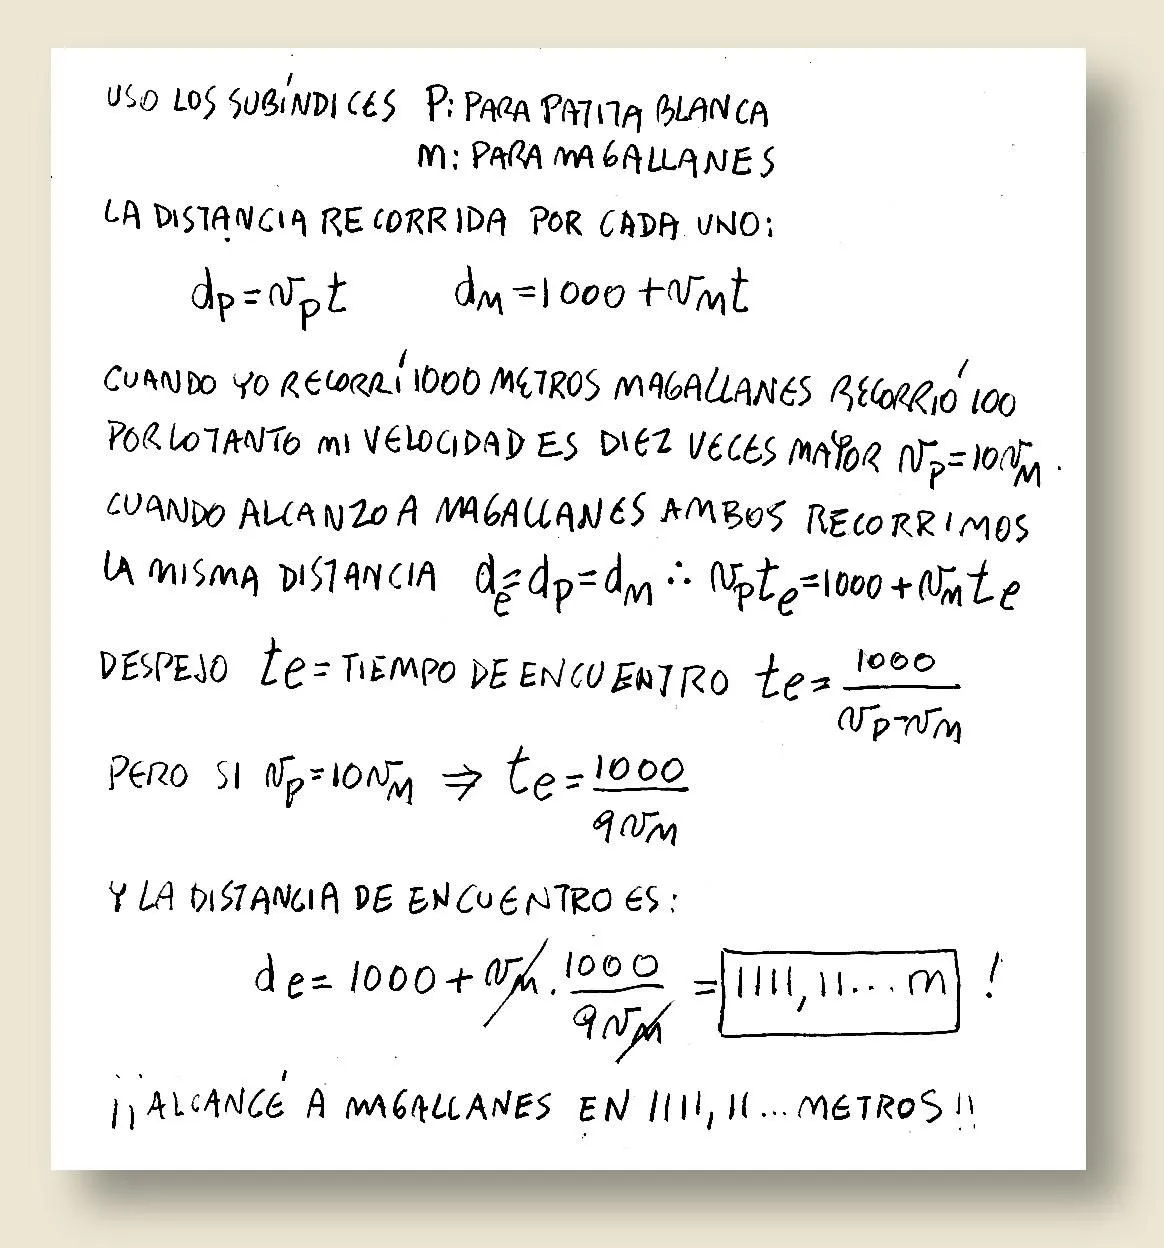 USO LOS SUBÍNDICES P: PARA PATITA BLANCA
M: PARA MAGALLANES
LA DISTANCIA RECORRIDA POR CADA UNO:
dp = vpt dM = 1000 + vMt
CUANDO YO RECORRÍ 1000 METROS MAGALLANES RECORRIÓ 100
POR LO TANTO MI VELOCIDAD ES DIEZ VECES MAYOR vp = 10vM.
CUANDO ALCANZO A MAGALLANES AMBOS RECORRIMOS
LA MISMA DISTANCIA de = dp = dM ∴ vpte = 1000 + vMte
DESPEJO te = TIEMPO DE ENCUENTRO te = 1000/(vp-vM)
PERO SI vp = 10vM ⇒ te = 1000/(9vM)
Y LA DISTANCIA DE ENCUENTRO ES:
de = 1000 + vM . 1000/(9vM) = 1111,11... m !
¡¡ALCANCÉ A MAGALLANES EN 1111,11... METROS!!